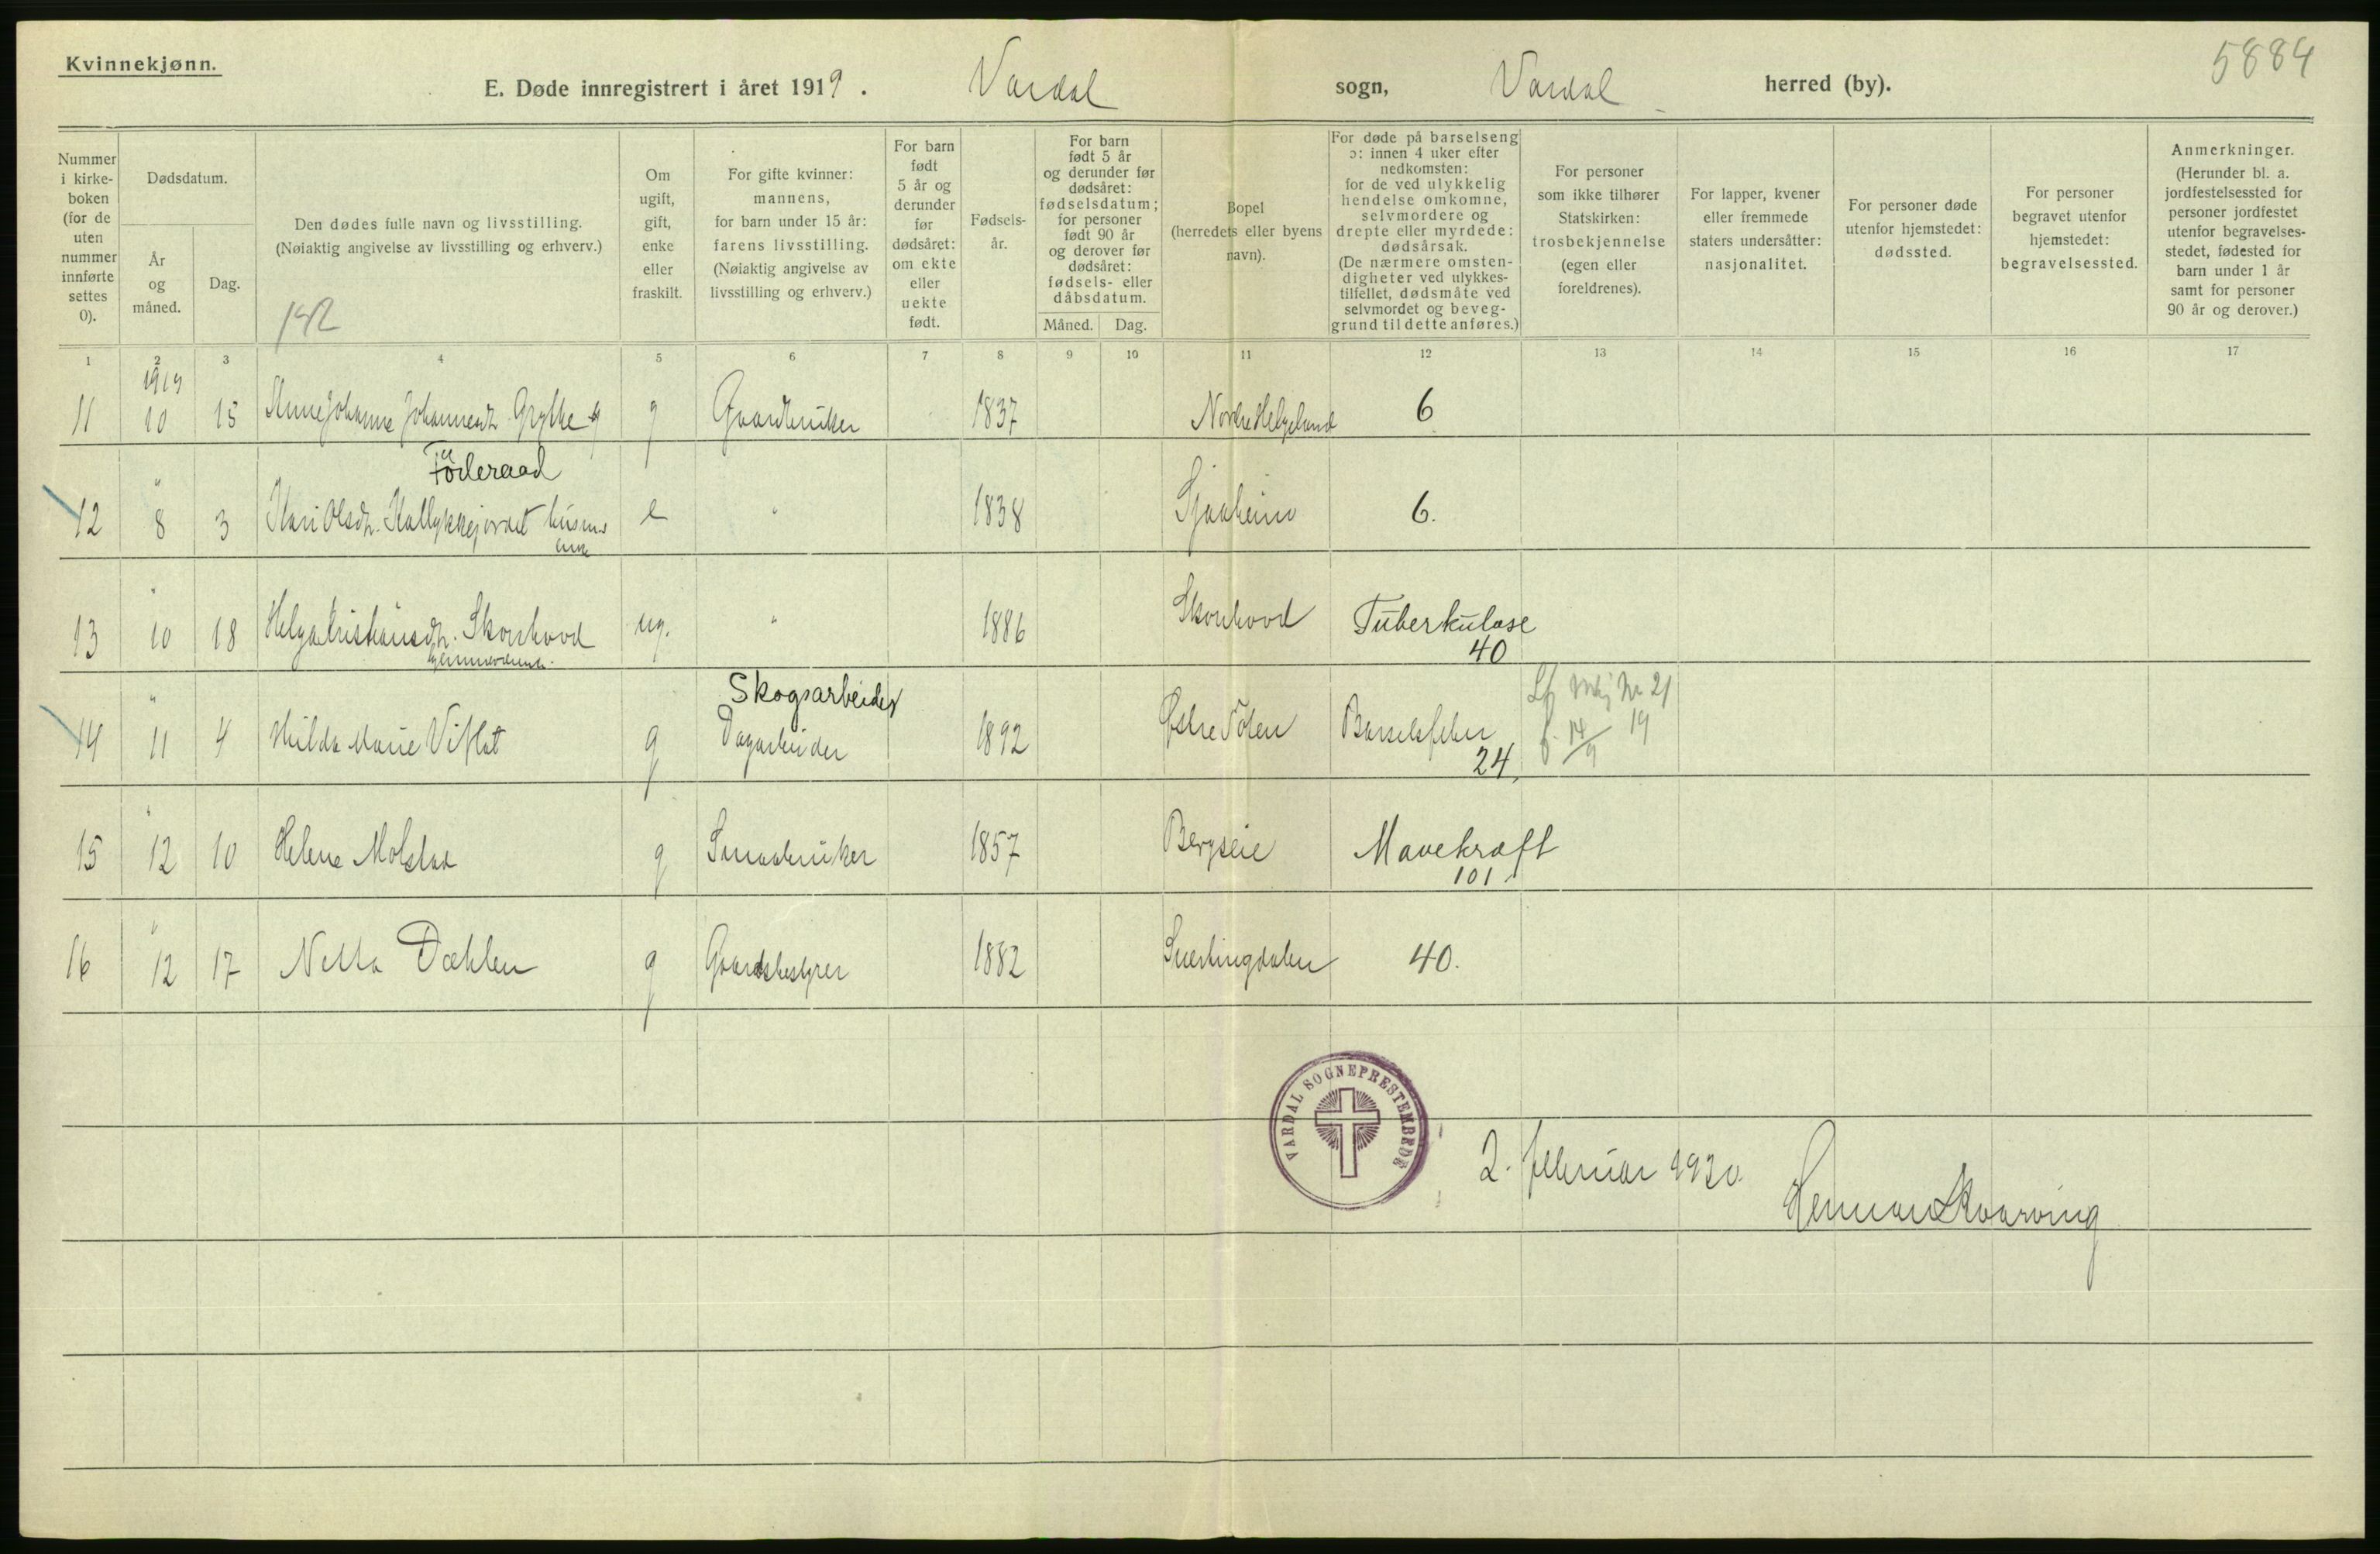 Kvinnekjønn.
5884
E. Døde innregistrert i året 1919. Vardal sogn, Vardal herred (by).
Nummer i kirke- boken (for de uten nummer innførte settes 0).
Dødsdatum.
År og måned.
Dag.
Den dødes fulle navn og livsstilling. (Nøiaktig angivelse av livsstilling og erhverv.)
142
Om ugift, gift, enke eller fraskilt.
For gifte kvinner: mannens, for barn under 15 år: farens livsstilling. (Nøiaktig angivelse av livsstilling og erhverv.)
For barn født 5 år og derunder før dødsåret: om ekte eller uekte født.
Fødsels- år.
For barn født 5 år og derunder før dødsåret: fødselsdatum; for personer født 90 år og derover før dødsåret: fødsels- eller dåbsdatum.
Måned. Dag.
Bopel (herredets eller byens navn).
For døde på barselseng ɔ: innen 4 uker efter nedkomsten: for de ved ulykkelig hendelse omkomne, selvmordere og drepte eller myrdede: dødsårsak. (De nærmere omsten- digheter ved ulykkes- tilfellet, dødsmåte ved selvmordet og beveg- grund til dette anføres.)
For personer som ikke tilhører Statskirken: trosbekjennelse (egen eller foreldrenes).
For lapper, kvener eller fremmede staters undersåtter: nasjonalitet.
For personer døde utenfor hjemstedet: dødssted.
For personer begravet utenfor hjemstedet: begravelsessted.
Anmerkninger. (Herunder bl. a. jordfestelsessted for personer jordfestet utenfor begravelses- stedet, fødested for barn under 1 år samt for personer 90 år og derover.)
1 2 3 4 5 6 7 8 9 10 11 12 13 14 15 16 17
1919
11 10 15 Anne Johanne Johannesdt. g Gaardbruker 1837 Nordre Helgeland 6
Föderaad
12 " 8 3 Kari Olsdt. e " 1838 Sjaaheim 6.
enke
13 " 10 18 Helga Kristiansdt. Skonhovd ug. " 1886 Skonhovd Tuberkulose
40
Skogsarbeider
14 " 11 4 Hilda Marie Viflat g Dagarbeider 1892 Østre Toten Barselsfeber 24 Nr 21
f. 14/9 19
15 " 12 10 Helene Molstad g Smaabruker 1857 Bergseie Mavekræft
101
16 " 12 17 Netta Dæhlen g Gaardsbestyrer 1882 Snertingdalen 40.
VARDAL SOGNEPRESTEMBEDE
2. februar 1920.
Herman Skaaring